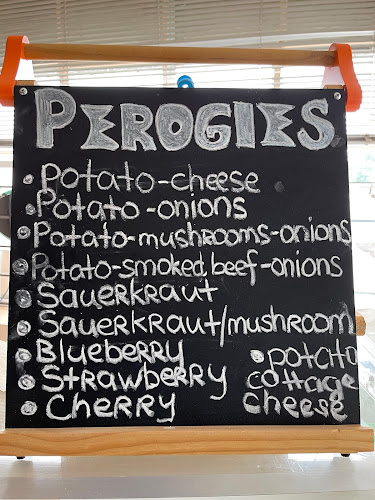 PEROGIES
• Potato-cheese
• Potato-onions
• Potato-mushrooms-onions
• Potato-smoked beef-onions
• Sauerkraut
• Sauerkraut/mushroom
• Blueberry
• Strawberry
• Cherry
• potato
cottage
cheese